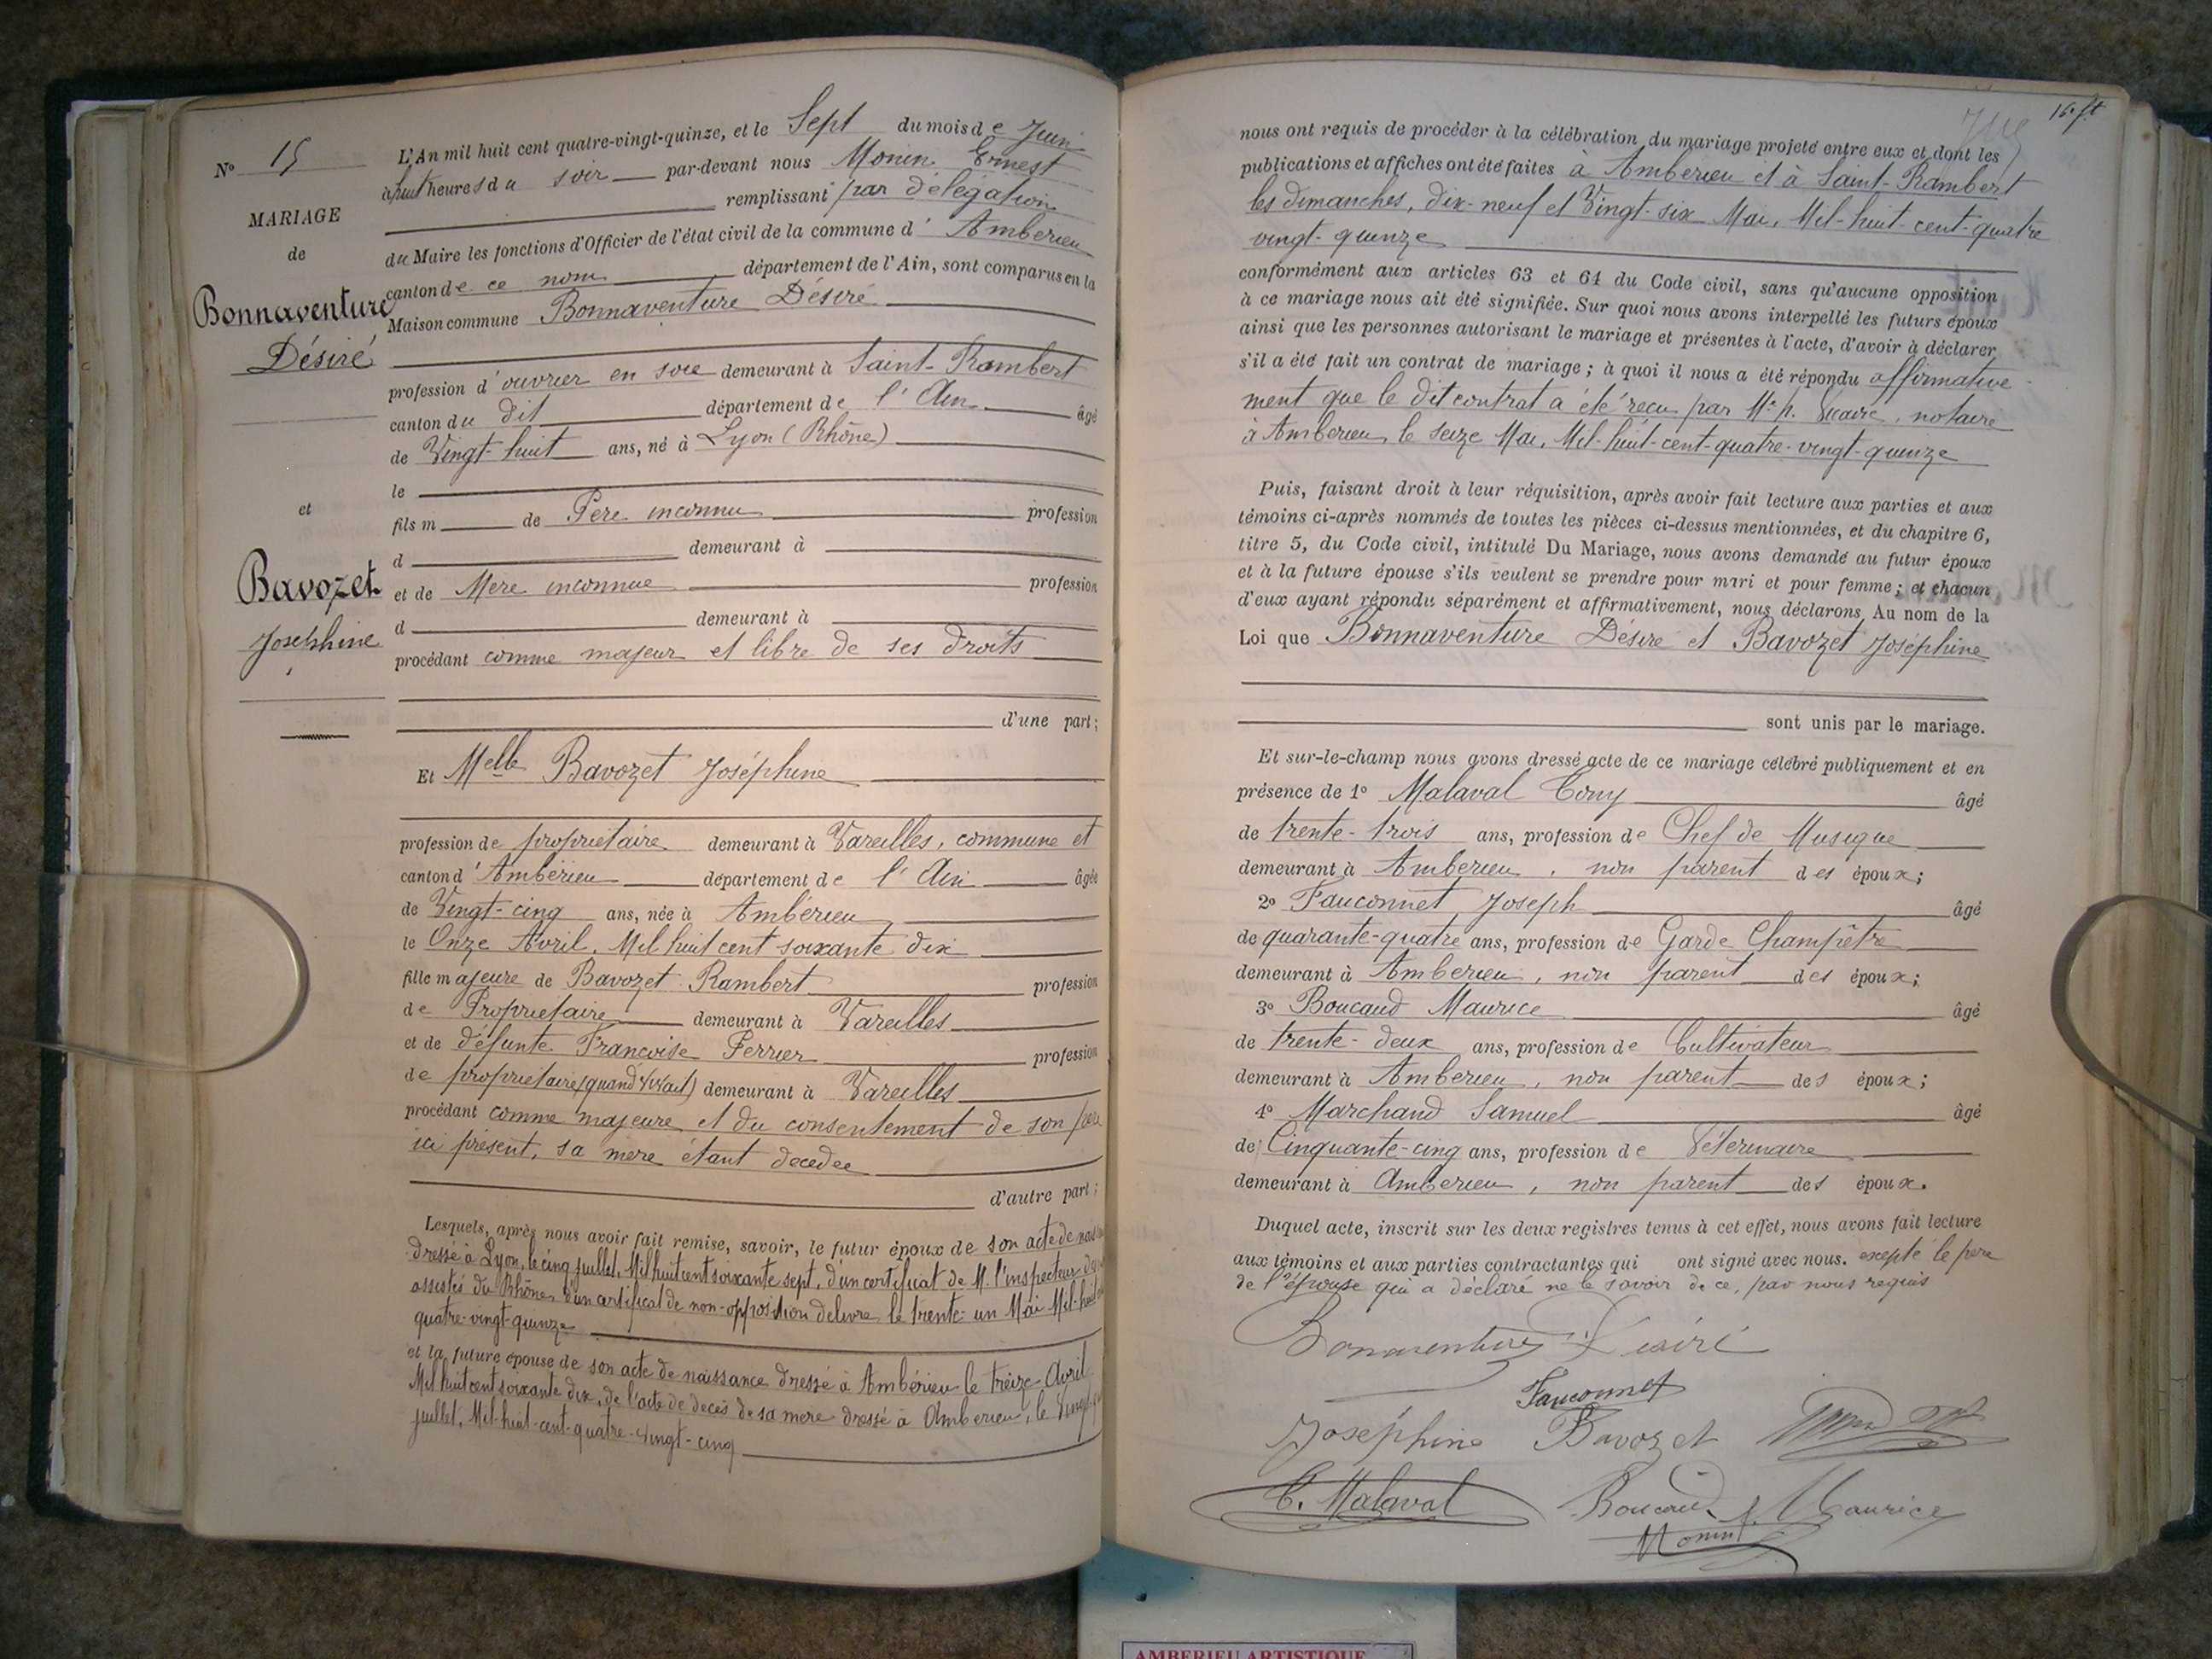 No 15
MARIAGE
de
Bonnaventure
Désiré
et
Bavozet
Joséphine
L'An mil huit cent quatre-vingt-quinze, et le Sept du mois de Juin
à huit heures du soir par-devant nous Monin Ernest
remplissant par délégation
du Maire les fonctions d'Officier de l'état civil de la commune d' Amberieu
canton de ce nom département de l'Ain, sont comparus en la
Maison commune Bonnaventure Désiré
profession d'ouvrier en soie demeurant à Saint-Rambert
canton du dit département de l'Ain âgé
de Vingt-huit ans, né à Lyon (Rhône)
le
fils m de Père inconnu profession
d demeurant à
et de Mère inconnue profession
d demeurant à
procédant comme majeur et libre de ses droits
d'une part;
Et Melle Bavozet Joséphine
profession de propriétaire demeurant à Vareilles, commune et
canton d'Ambérieu département de l'Ain âgée
de Vingt-cinq ans, née à Ambérieu
le Onze Avril, Mil huit cent soixante dix
fille majeure de Bavozet Rambert profession
de Propriétaire demeurant à Vareilles
et de défunte Françoise Perrier profession
de propriétaire (quand vivait) demeurant à Vareilles
procédant comme majeure et du consentement de son père
ici présent, sa mère étant décédée
d'autre part;
Lesquels, après nous avoir fait remise, savoir, le futur époux de son acte de
dressé à Lyon, le cinq juillet, Mil huit cent soixante sept, d'un certificat de M. l'inspecteur
assistés du Rhône, d'un certificat de non-opposition délivré le trente-un Mai Mil-huit
quatre-vingt-quinze
et la future épouse de son acte de naissance dressé à Ambérieu le treize Avril
Mil huit cent soixante dix, de l'acte de décès de sa mère dressé à Amberieu, le Vingt
juillet, Mil-huit-cent-quatre-vingt-cinq
nous ont requis de procéder à la célébration du mariage projeté entre eux et dont les
publications et affiches ont été faites à Amberieu et à Saint-Rambert
les dimanches, dix-neuf et Vingt-six Mai, Mil-huit-cent-quatre
vingt-quinze
conformément aux articles 63 et 64 du Code civil, sans qu'aucune opposition
à ce mariage nous ait été signifiée. Sur quoi nous avons interpellé les futurs époux
ainsi que les personnes autorisant le mariage et présentes à l'acte, d'avoir à déclarer
s'il a été fait un contrat de mariage; à quoi il nous a été répondu affirmative-
ment que le dit contrat a été reçu par Me p. Vicaire, notaire
à Amberieu, le seize Mai, Mil-huit-cent-quatre-vingt-quinze
Puis, faisant droit à leur réquisition, après avoir fait lecture aux parties et aux
témoins ci-après nommés de toutes les pièces ci-dessus mentionnées, et du chapitre 6,
titre 5, du Code civil, intitulé Du Mariage, nous avons demandé au futur époux
et à la future épouse s'ils veulent se prendre pour mari et pour femme; et chacun
d'eux ayant répondu séparément et affirmativement, nous déclarons Au nom de la
Loi que Bonnaventure Désiré et Bavozet Joséphine
sont unis par le mariage.
Et sur-le-champ nous avons dressé acte de ce mariage célébré publiquement et en
présence de 1º Malaval Tony âgé
de trente-trois ans, profession de Chef de Musique
demeurant à Amberieu, non parent des époux;
2º Fauconnet Joseph âgé
de quarante-quatre ans, profession de Garde Champêtre
demeurant à Amberieu, non parent des époux;
3º Boucaud Maurice âgé
de trente-deux ans, profession de Cultivateur
demeurant à Amberieu, non parent des époux;
4º Marchand Samuel âgé
de Cinquante-cinq ans, profession de Vétérinaire
demeurant à Amberieu, non parent des époux.
Duquel acte, inscrit sur les deux registres tenus à cet effet, nous avons fait lecture
aux témoins et aux parties contractantes qui ont signé avec nous. excepté le père
de l'épouse qui a déclaré ne le savoir de ce, par nous requis
Bonnaventure Désiré
Fauconnet
Joséphine Bavozet
C. Malaval
Boucaud Maurice
Monin
AMBERIEU ARTISTIQUE